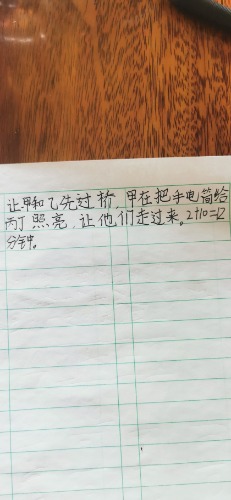 让甲和乙先过桥，甲在把手电筒给
丙丁照亮，让他们走过来。2+10=12
分钟。